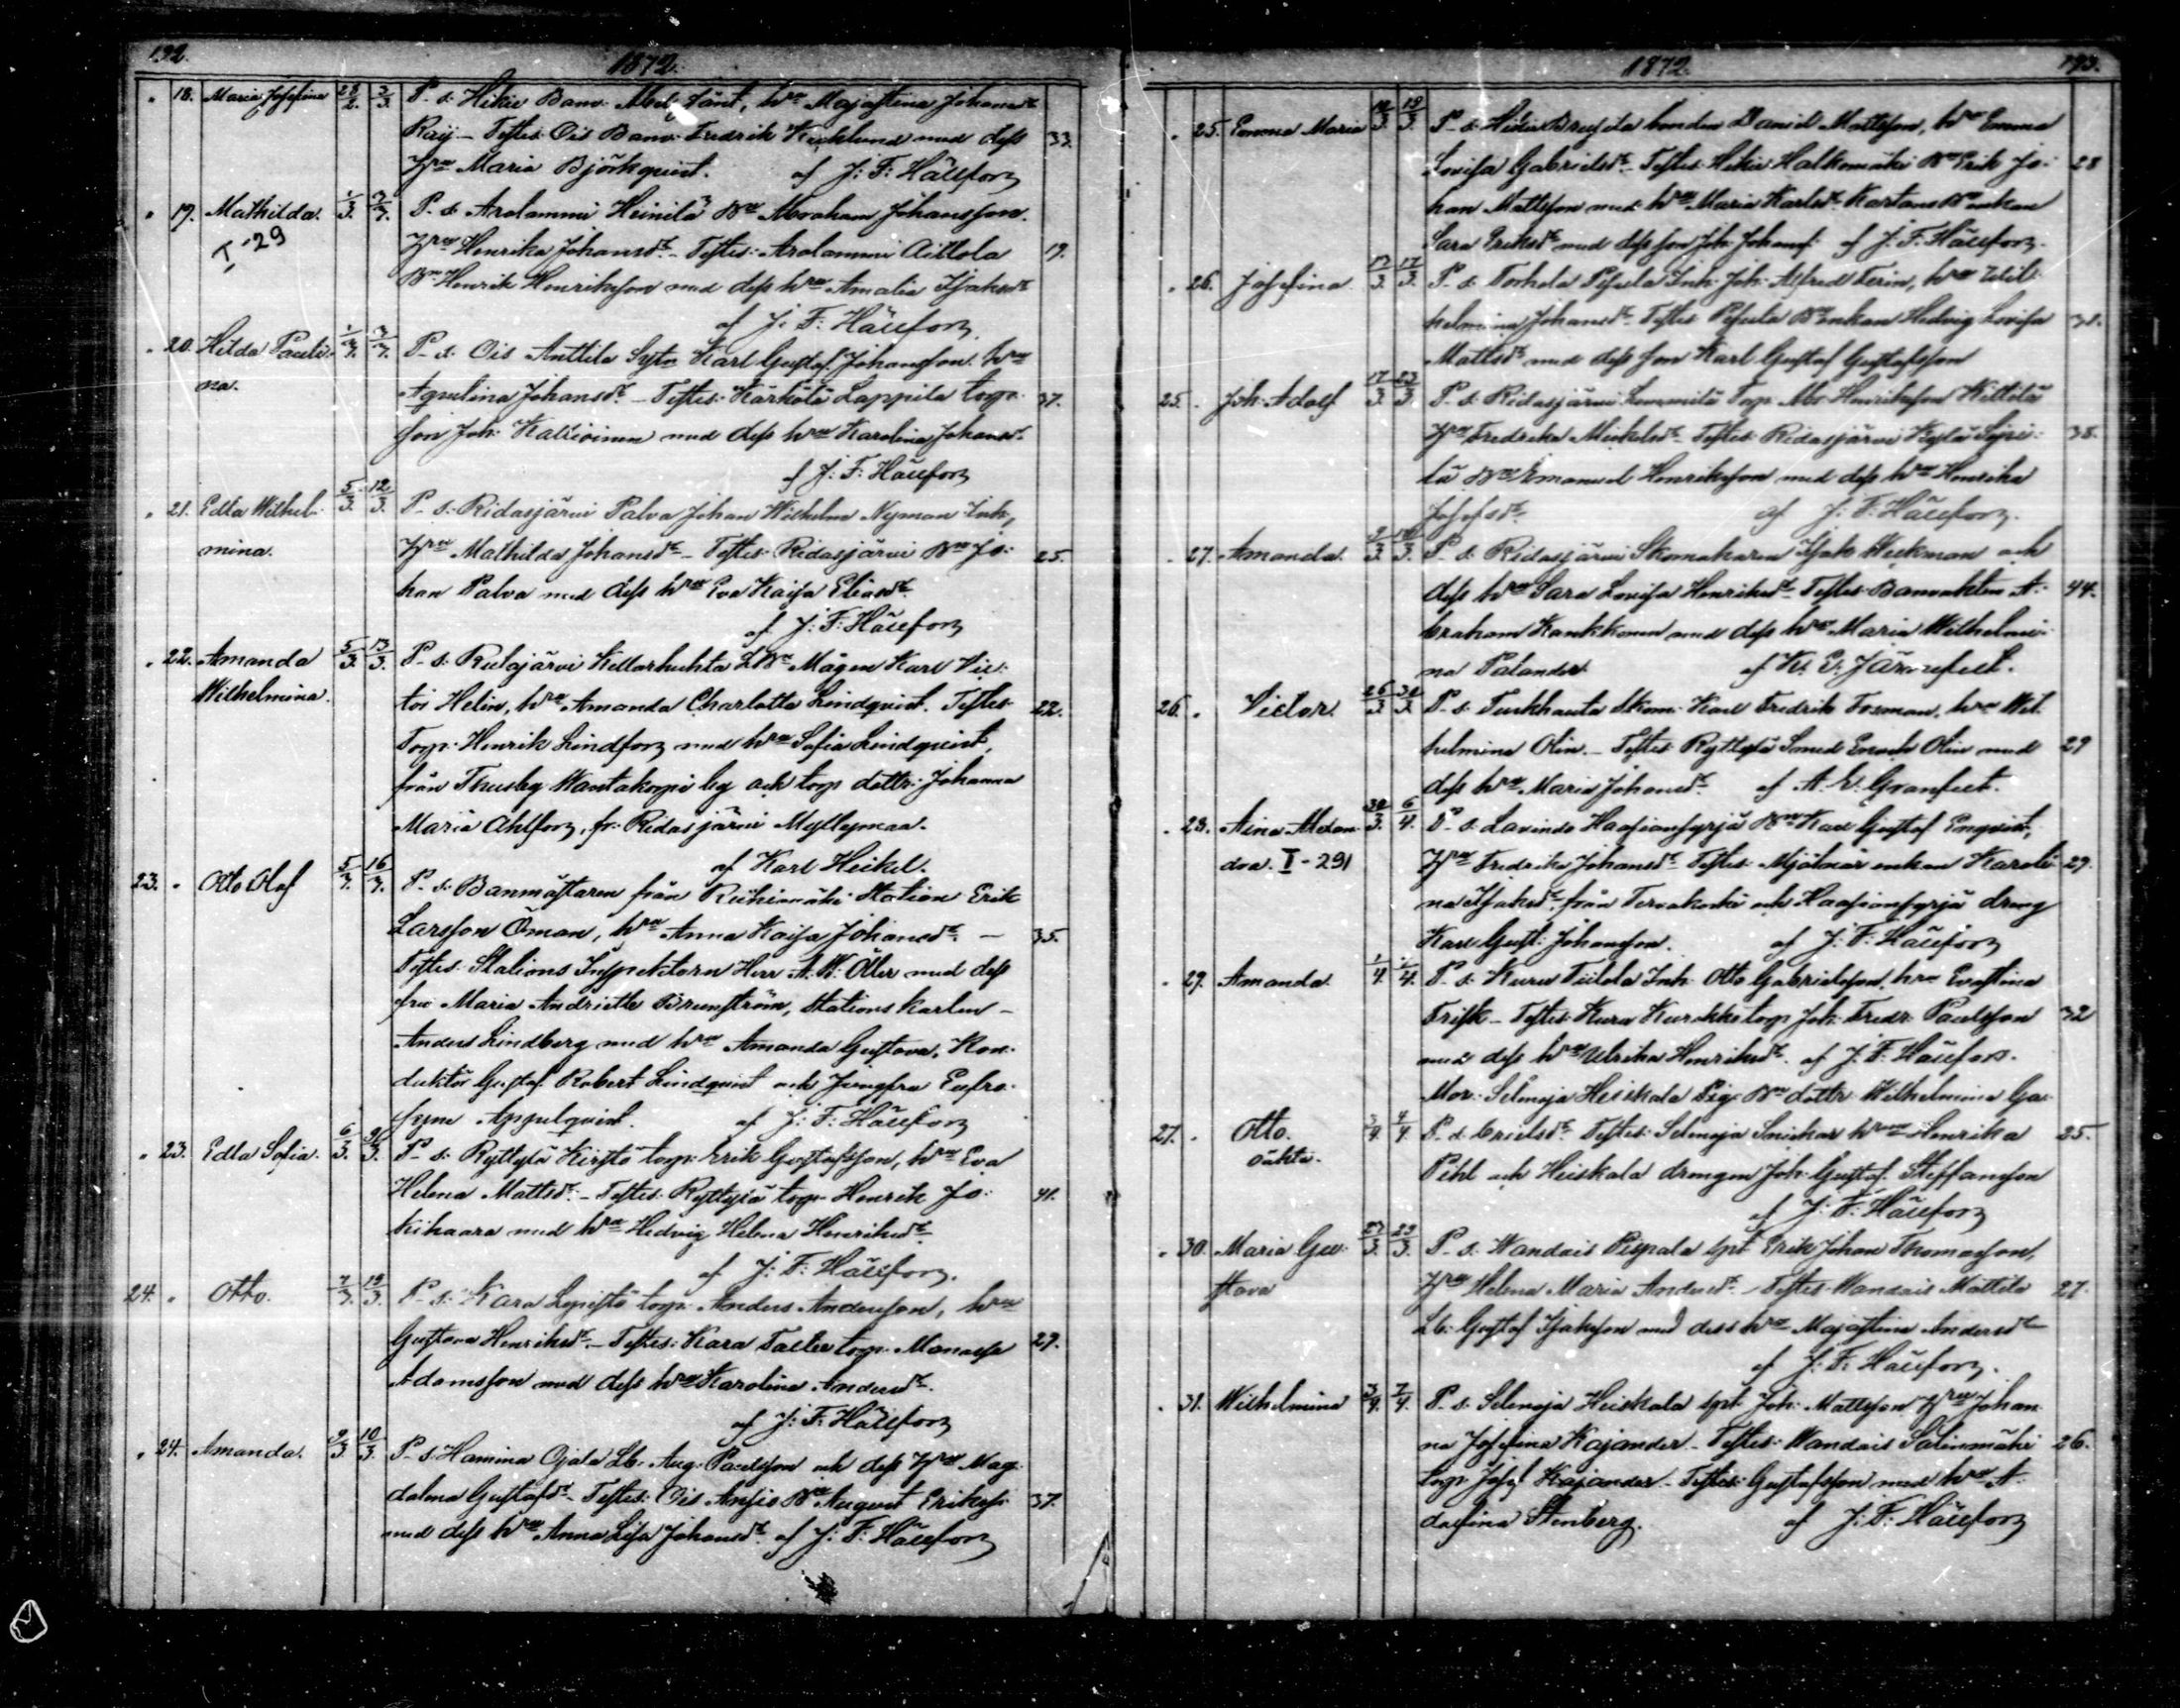 192.
1872.
" 18. Maria Josefina 28/2. 3/3. P. s. Hikie Banv. Abel Sänt, hru Majastina Johansdr
Raij - Testes: Ois Banv. Fredrik Kecklund med dess 33.
Hru Maria Björkqvist. af J: F: Hällfors
" 19. Mathilda. 1/3. 3/3. P. s. Arolammi Heinilä Bn Abraham Johansson.
I-29 Hru Henrika Johansdr - Testes: Arolammi Aittola 19.
Bn Henrik Henriksson med dess hru Amalia Isaksdr
af J: F: Hällfors
" 20. Hilda Pauli- 1/3. 3/3. P. s. Ois Anttila Sytn. Karl Gustaf Johansson. hru
na. Agustina Johansdr. - Testes: Kärkölä Lappila torp- 37.
son Joh. Kallioinen med dess hru Karolina Johansdr
af J: F: Hällfors
" 21. Edla Wilhel- 5/3. 12/3. P. s. Ridasjärvi Palva Johan Wilhelm Nyman Inh,
mina. Hru Mathilda Johansdr - Testes: Ridasjärvi Bn Jo- 25.
han Palva med dess hru Eva Kaisa Eliasdr.
af J: F: Hällfors
" 22. Amanda 5/3. 13/3. P. s. Kellarhuhta Mågen Karl Vic-
Wilhelmina. tor Helin, hru Amanda Charlotta Lindqvist. Testes 22.
Torp. Henrik Lindfors med hru Sofia Lindqvist,
från Thusby Wantakorpi by och torp. dottr. Johanna
Maria Ahlfors, fr. Ridasjärvi Myllymaa.
af Karl Heikel.
23. " Otto Olof 5/3. 16/3. P. s. Banmästaren från Riihimäki Station Erik
Larsson Öman, hru Anna Kaisa Johansdr. - 35.
Testes: Stations Inspektorn Herr A. W. Öller med dess
fru Maria Andriette Brunström, Stations karlen -
Anders Lindberg med hru Amanda Gustava, Kon-
duktör Gustaf Robert Lindqvist och Jungfru Eufro-
syne Appelqvist. af J: F: Hällfors
" 23. Edla Sofia. 6/3. P. s. Ryttylä Kirstö torp. Erik Gustafsson, hru Eva
Helena Mattsdr. - Testes: Ryttylä torp. Henrik Jo- 41.
kihaara med hru Hedvig Helena Henriksdr.
af J: F: Hällfors.
24. " Otto. 7/3. 19/3. P. s. Kara Lepistö torp. Anders Andersson, hru
Gustava Henriksdr. - Testes: Kara torp. Manasse 29.
Adamsson med dess hru Karolina Andersdr.
af J: F: Hällfors
" 24. Amanda. 9/3. 10/3. P. s. Hamina Ojala Lb. Aug. Paulsson och dess Hru Mag-
dalena Gustafsdr - Testes: Ois Ansio Bn August Eriksson 37.
med dess hru Anna Lisa Johansdr. af J: F: Hällfors
1872. 193.
" 25. Emma Maria 10/3. P. s. Hikiä bonden David Mattsson, hru Emma
Lovisa Gabrielsdr - Testes: Hikiä Halkomäki Bn Erik Jo- 28
han Mattsson med hru Maria Karlsdr. Bn enkan
Sara Eriksdr med dess son Joh. Johanss. af J: F: Hällfors.
" 26. Josefina 17/3. 17/3. P. s. Torhola Pesula Inh. Joh. Alfred Terin, hru Wil-
helmina Johansdr - Testes: Pesula Bn enkan Hedvig Lovisa
Mattsdr med dess son Karl Gustaf Gustafsson
25. " Joh. Adolf 17/3. 23/3. P. s. Ridasjärvi Torp. Abr. Henriksson
Hru Fredrika Michelsdr - Testes: Ridasjärvi Kylä Seppä- 38.
lä Bn Emanuel Henriksson med dess hru Henrika
Josefsdr. af J: F: Hällfors.
" 27. Amanda. P. s. Ridasjärvi Skomakaren Isak Weckman och
dess hru Sara Lovisa Henriksdr - Testes: Banvakten A- 44.
braham Kankkonen med dess hru Maria Wilhelmi-
na Palander. af Järnefelt.
26. " Victor. 26/3 30/3 P. s. Turkhauta Skom. Karl Fredrik Forsman, hru Wil-
helmina Olin. - Testes: Ryttylä Smed Enoch Olin med 29
dess hru Maria Johansdr. af A. E. Granfelt.
" 28. Aina Alexan- 30/3. 6/4. P. s. Lavinto Bn Karl Gustaf Engvist,
dra. I-291 Hru Fredrika Johansdr - Testes: Mjölnar enkan Karoli- 29.
na Isaksdr, från Tervakoski och dreng
Karl Gust. Johansson. af J: F: Hällfors
" 29. Amanda. 1/4. /4. P. s. Kuru Tiilola Inh. Otto Gabrielsson, hru Evastina
Frisk - Testes: Kuru torp. Joh. Fredr. Paulsson 32
med dess hru Ulrika Henriksdr. af J: F: Hällfors.
Mor: Selenoja Heiskala Bn dottr. Wilhelmina Ga-
27. " Otto. 3/4. 4/4. P. s. brielsdr. Testes: Selenoja Snickar hru Henrika 25.
oäkta. Pihl och Heiskala drengen Joh. Gustaf Steffansson
af J: F: Hällfors
" 30. Maria Gu- 23/3. 29/3. P. s. Wandais Pispala spt Erik Johan Thomasson,
stava Hru Helena Maria Andersdr. - Testes: Wandais Mattila 27.
Lb. Gustaf Isaksson med dess hru Majastina Andersdr
af J: F: Hällfors.
" 31. Wilhelmina 3/4. 7/4. P. s. Selenoja Heiskala spt Joh. Mattsson Hru Johan-
na Josefina Kajander - Testes: Wandais Salinmäki 26.
torp. Josef Kajander - Testes: Gustafsson med hru A-
dastina Stenberg. af J: F: Hällfors